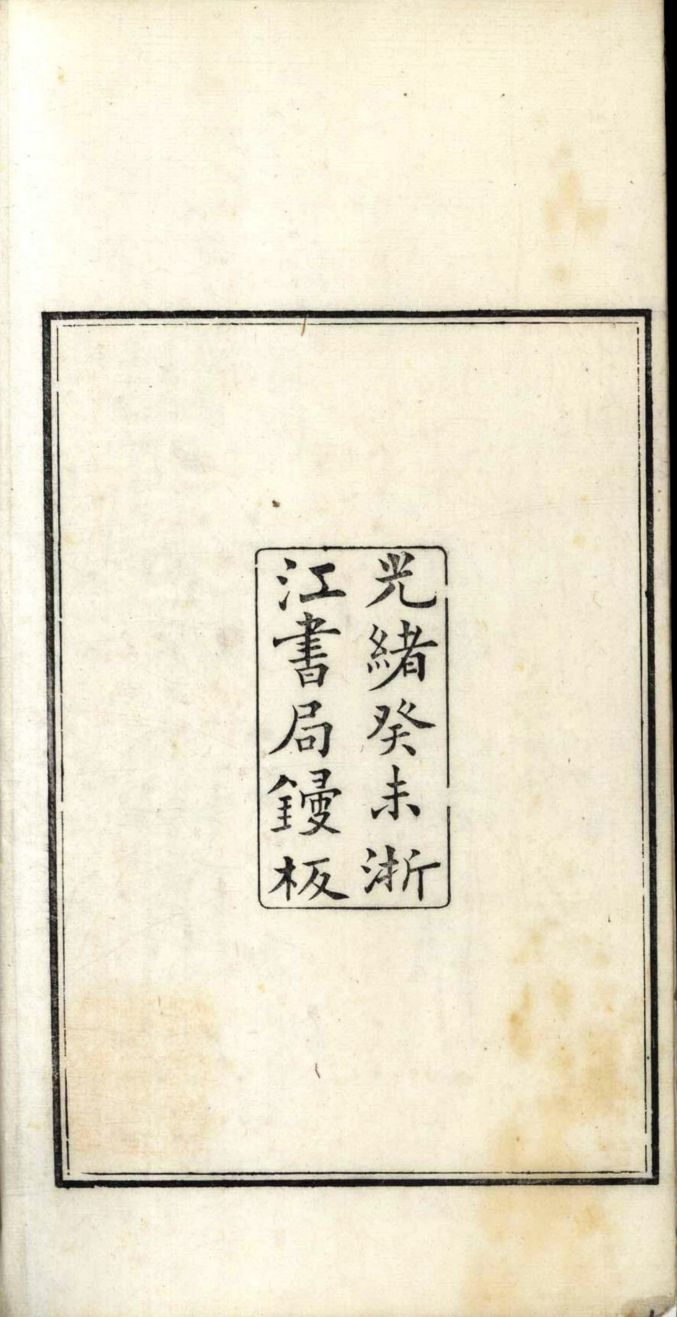 光緒癸未浙
江書局鋟板